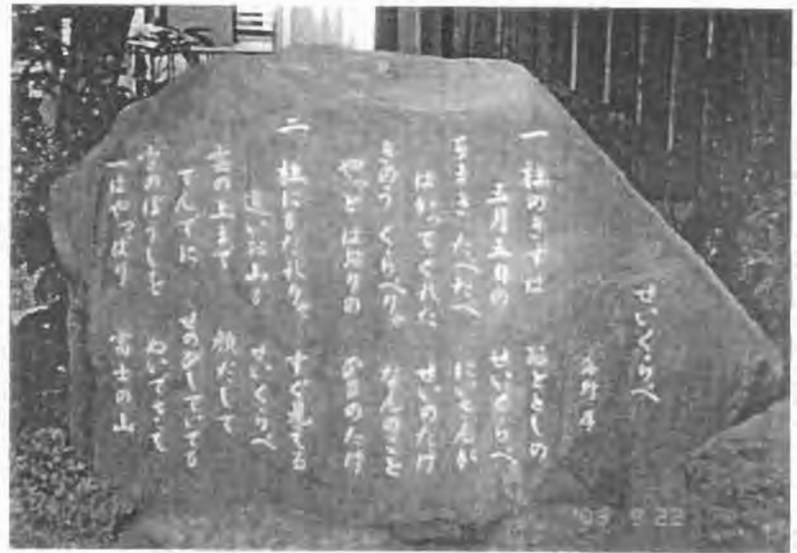 せいくらべ
海野厚
一 柱のきずは おととしの
五月五日の せいくらべ
ちまきたべたべ にいさんが
はかってくれた せいのたけ
きのうくらべりゃ なんのこと
やっとはおりの ひものたけ
二 柱にもたれりゃ すぐ見える
遠いお山も せいくらべ
雲の上まで 顔だして
てんでに せのびしていても
雪のぼうしを ぬいでさえ
一はやっぱり 富士の山
9 22